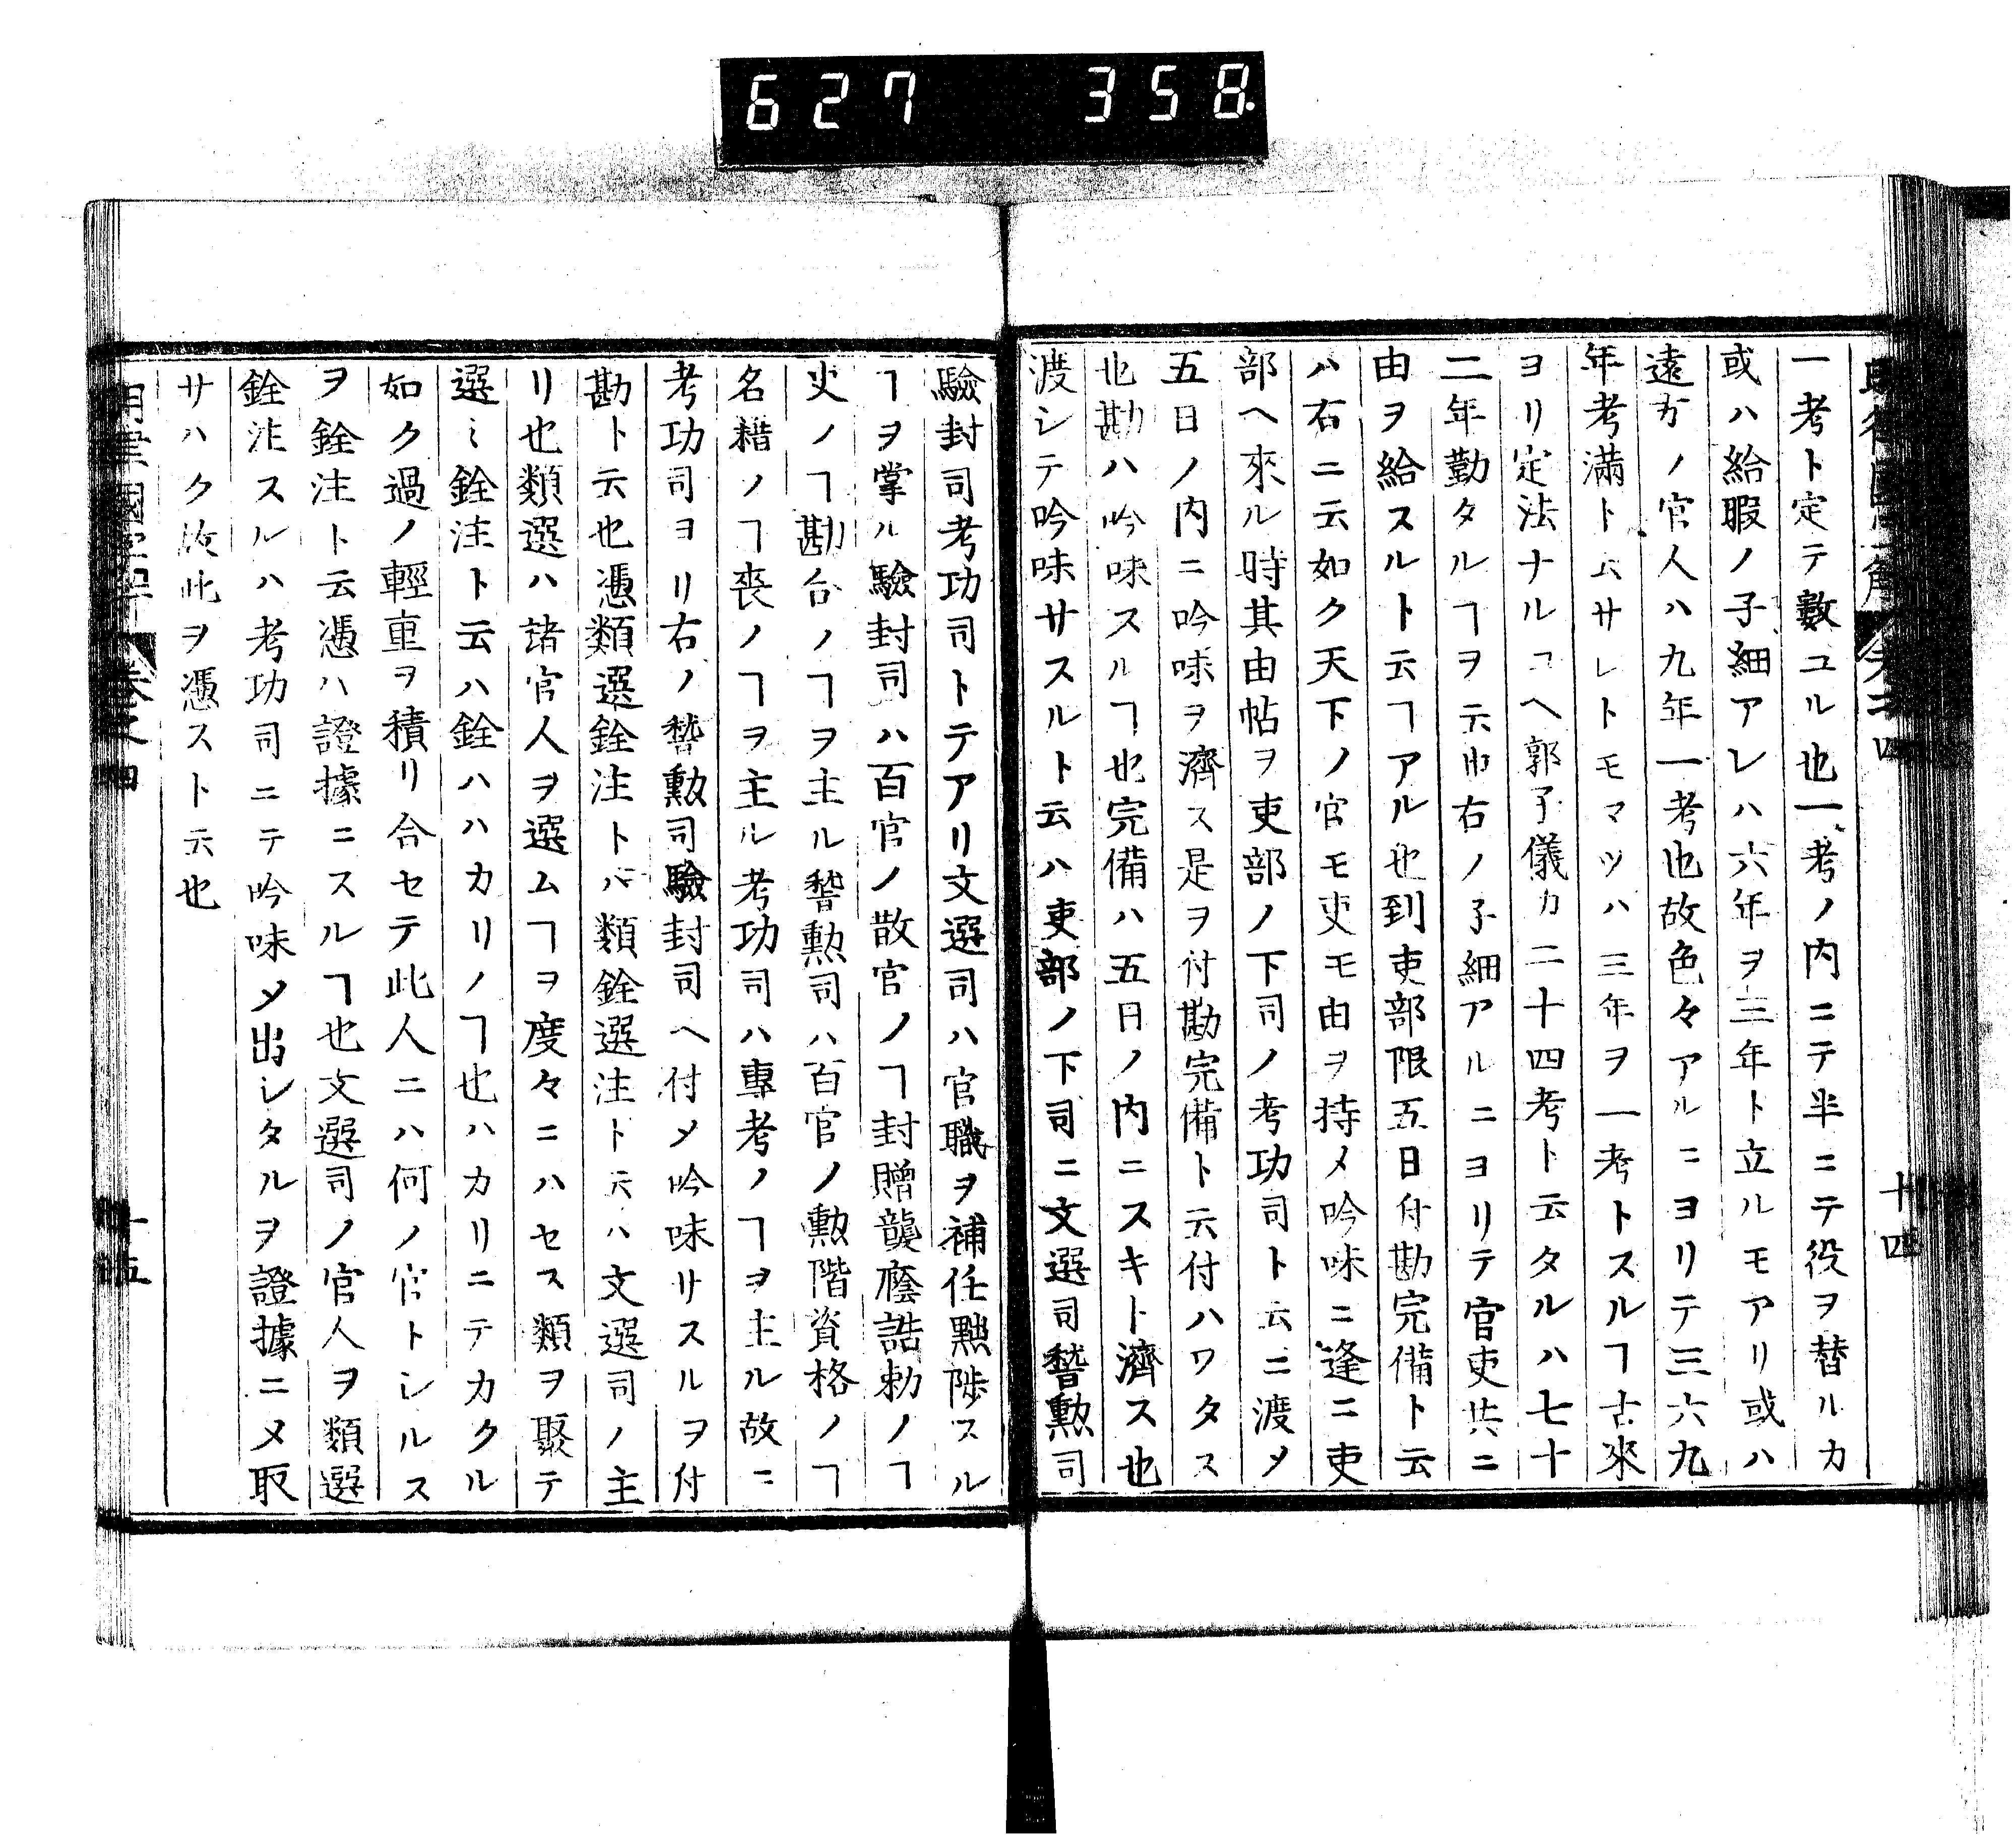 627 358.
一考ト定テ數ユル也一考ノ内ニテ半ニテ役ヲ替ルカ
或ハ給暇ノ子細アレハ六年ヲ三年ト立ルモアリ或ハ
遠方ノ官人ハ九年一考也故色々アルニヨリテ三六九
年考滿ト云サレトモマツハ三年ヲ一考トスルヿ古來
ヨリ定法ナルユヘ郭子儀カ二十四考ト云タルハ七十
二年勤タルヿヲ云也右ノ子細アルニヨリテ官吏共ニ
由ヲ給スルト云ヿアル也到吏部限五日付勘完備ト云
ハ右ニ云如ク天下ノ官モ吏モ由ヲ持メ吟味ニ逢ニ吏
部ヘ來ル時其由帖ヲ吏部ノ下司ノ考功司ト云ニ渡メ
五日ノ内ニ吟味ヲ濟ス是ヲ付勘完備ト云付ハワタス
也勘ハ吟味スルヿ也完備ハ五日ノ内ニスキト濟ス也
渡シテ吟味サスルト云ハ吏部ノ下司ニ文選司稽勲司
十四
驗封司考功司トテアリ文選司ハ官職ヲ補任黜陟スル
ヿヲ掌ル驗封司ハ百官ノ散官ノヿ封贈襲廕誥勅ノヿ
吏ノヿ勘合ノヿヲ主ル稽勲司ハ百官ノ勲階資格ノヿ
名籍ノヿ喪ノヿヲ主ル考功司ハ專考ノヿヲ主ル故ニ
考功司ヨリ右ノ稽勲司驗封司ヘ付メ吟味サスルヲ付
勘ト云也憑類選銓注トハ類銓選注ト云ハ文選司ノ主
リ也類選ハ諸官人ヲ選ムヿヲ度々ニハセス類ヲ聚テ
選ミ銓注ト云ハ銓ハハカリノヿ也ハカリニテカクル
如ク過ノ輕重ヲ積リ合セテ此人ニハ何ノ官トシルス
ヲ銓注ト云憑ハ證據ニスルヿ也文選司ノ官人ヲ類選
銓注スルハ考功司ニテ吟味メ出シタルヲ證據ニメ取
サハク故此ヲ憑スト云也
卷之四
十五